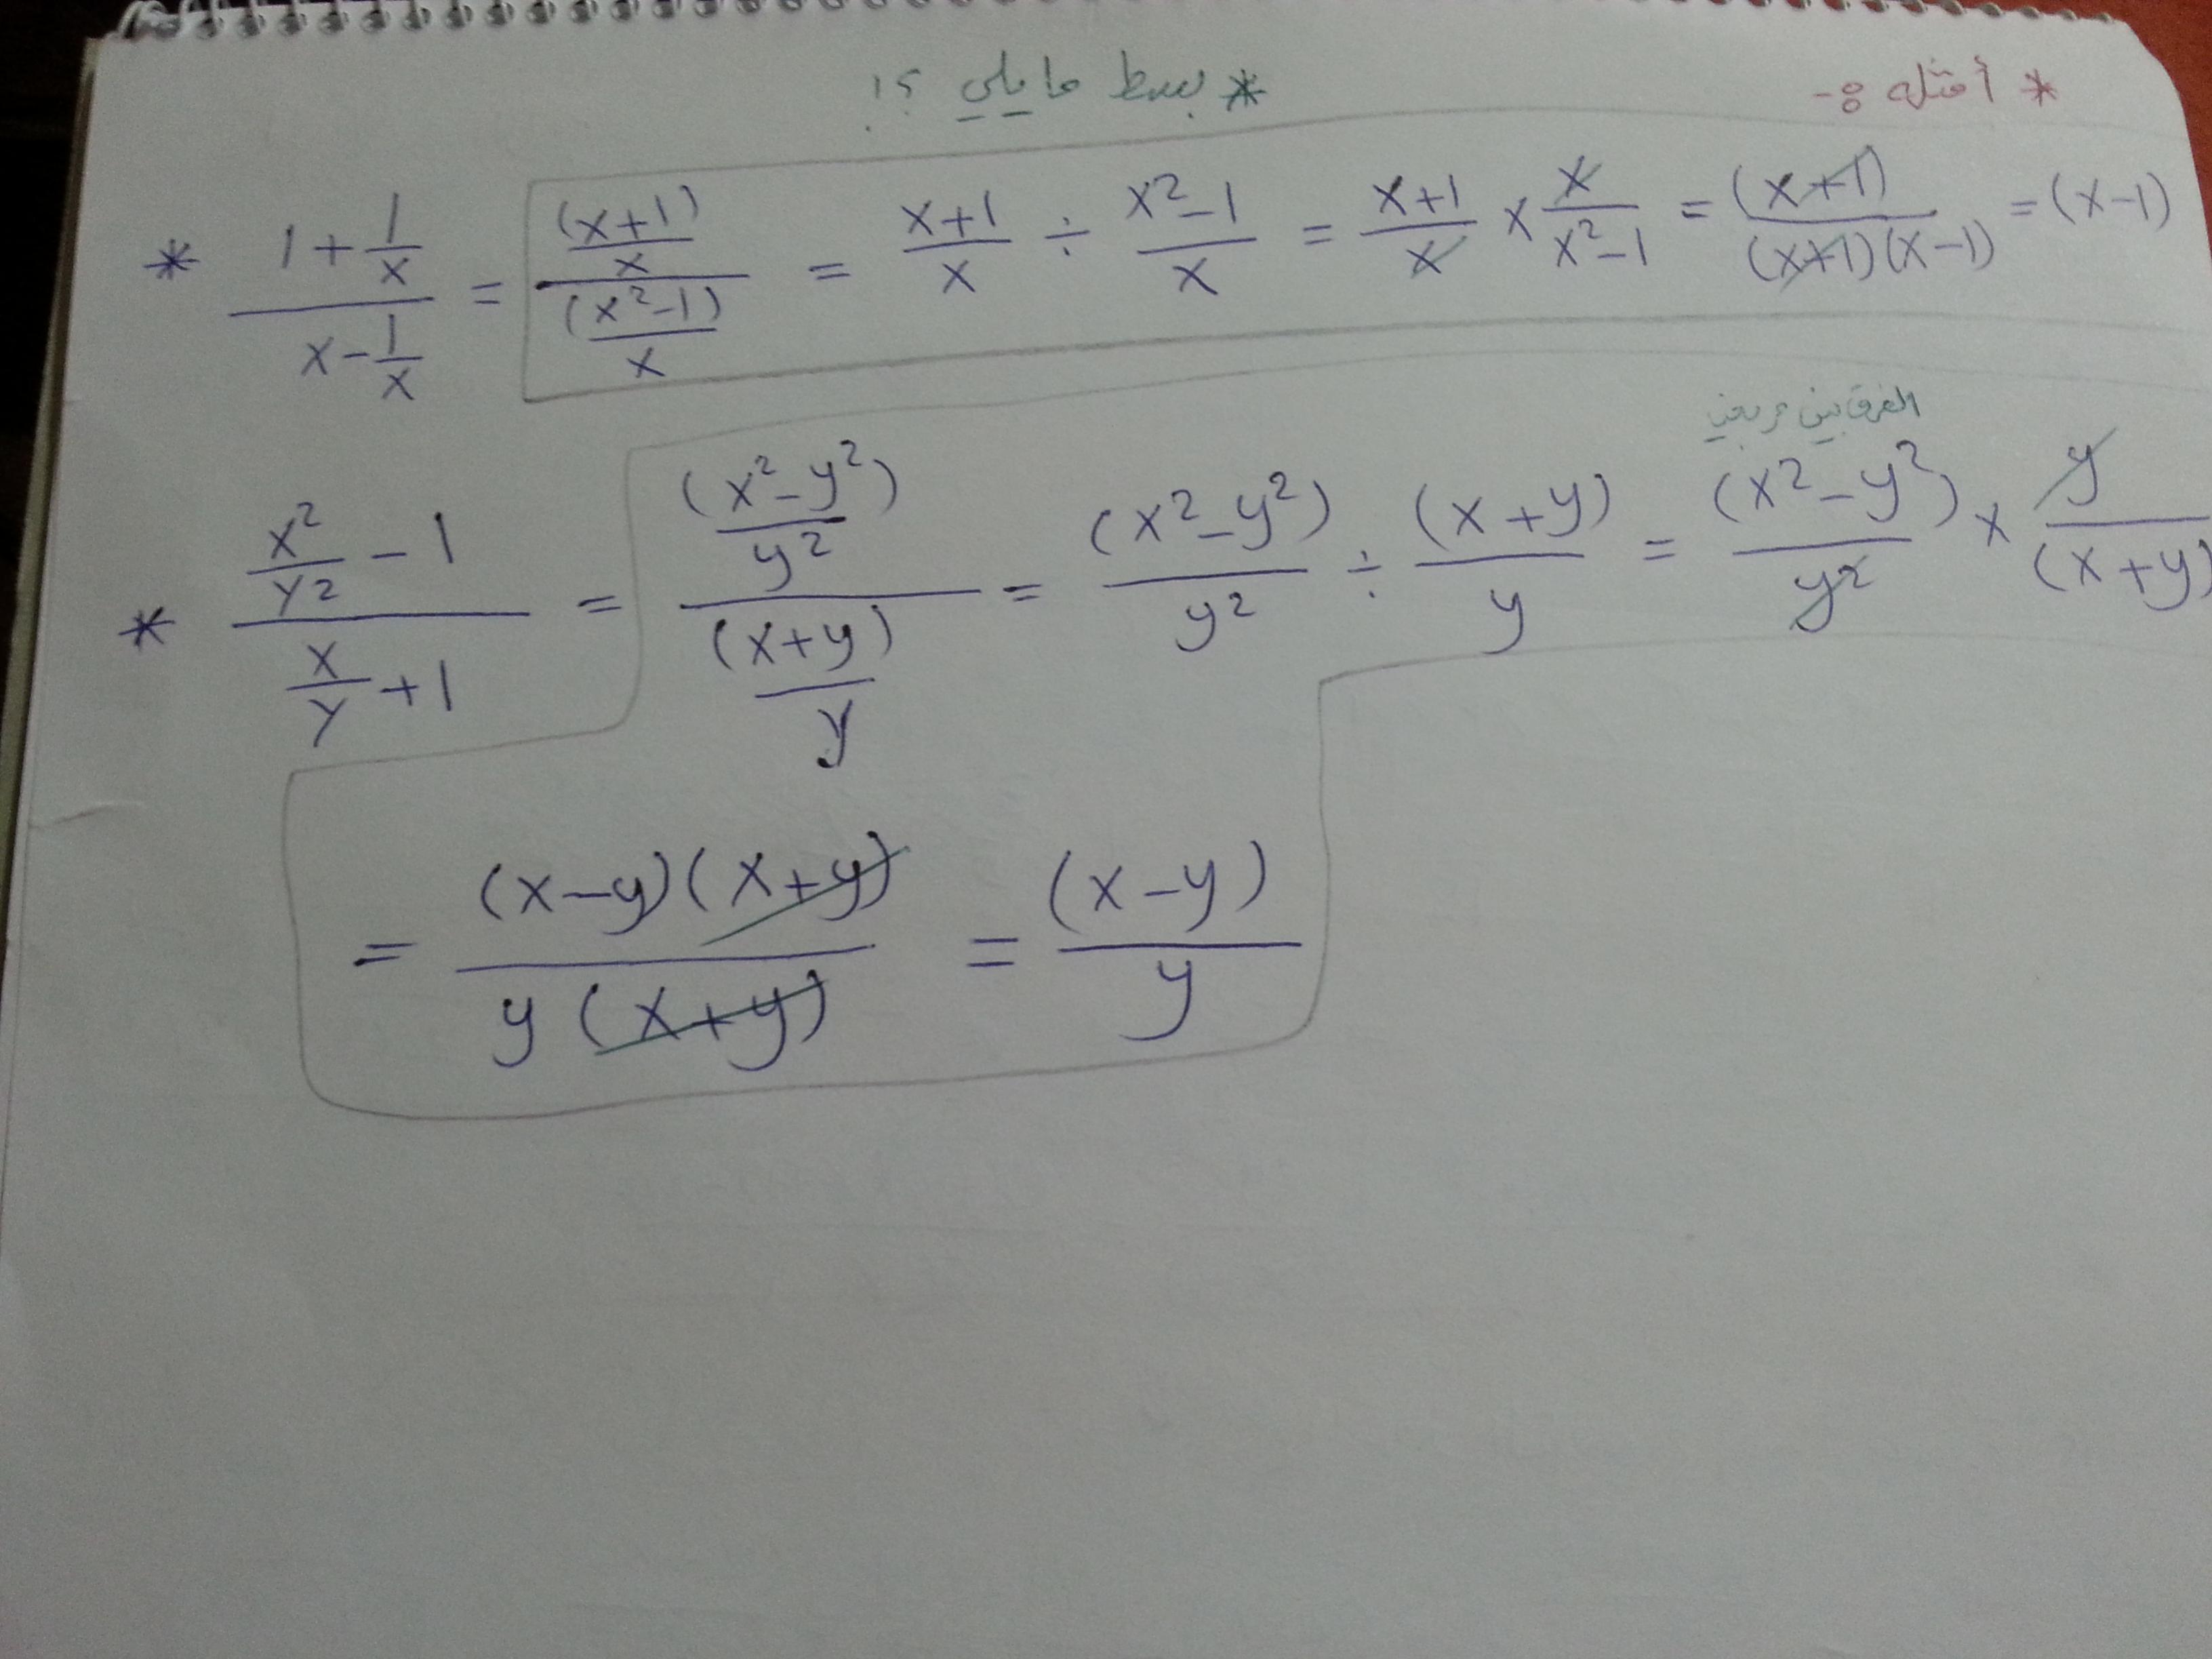 * أمثله :-
* بسط ما يلي ؟!
* (1 + 1/x)/(x - 1/x) = ((x+1)/x)/((x²-1)/x) = (x+1)/x ÷ (x²-1)/x = (x+1)/x × x/(x²-1) = (x+1)/((x+1)(x-1)) = (x-1)
الفرق بين مربعين
* (x²/y² - 1)/(x/y + 1) = ((x²-y²)/y²)/((x+y)/y) = (x²-y²)/y² ÷ (x+y)/y = (x²-y²)/y² × y/(x+y)
= (x-y)(x+y)/(y(x+y)) = (x-y)/y